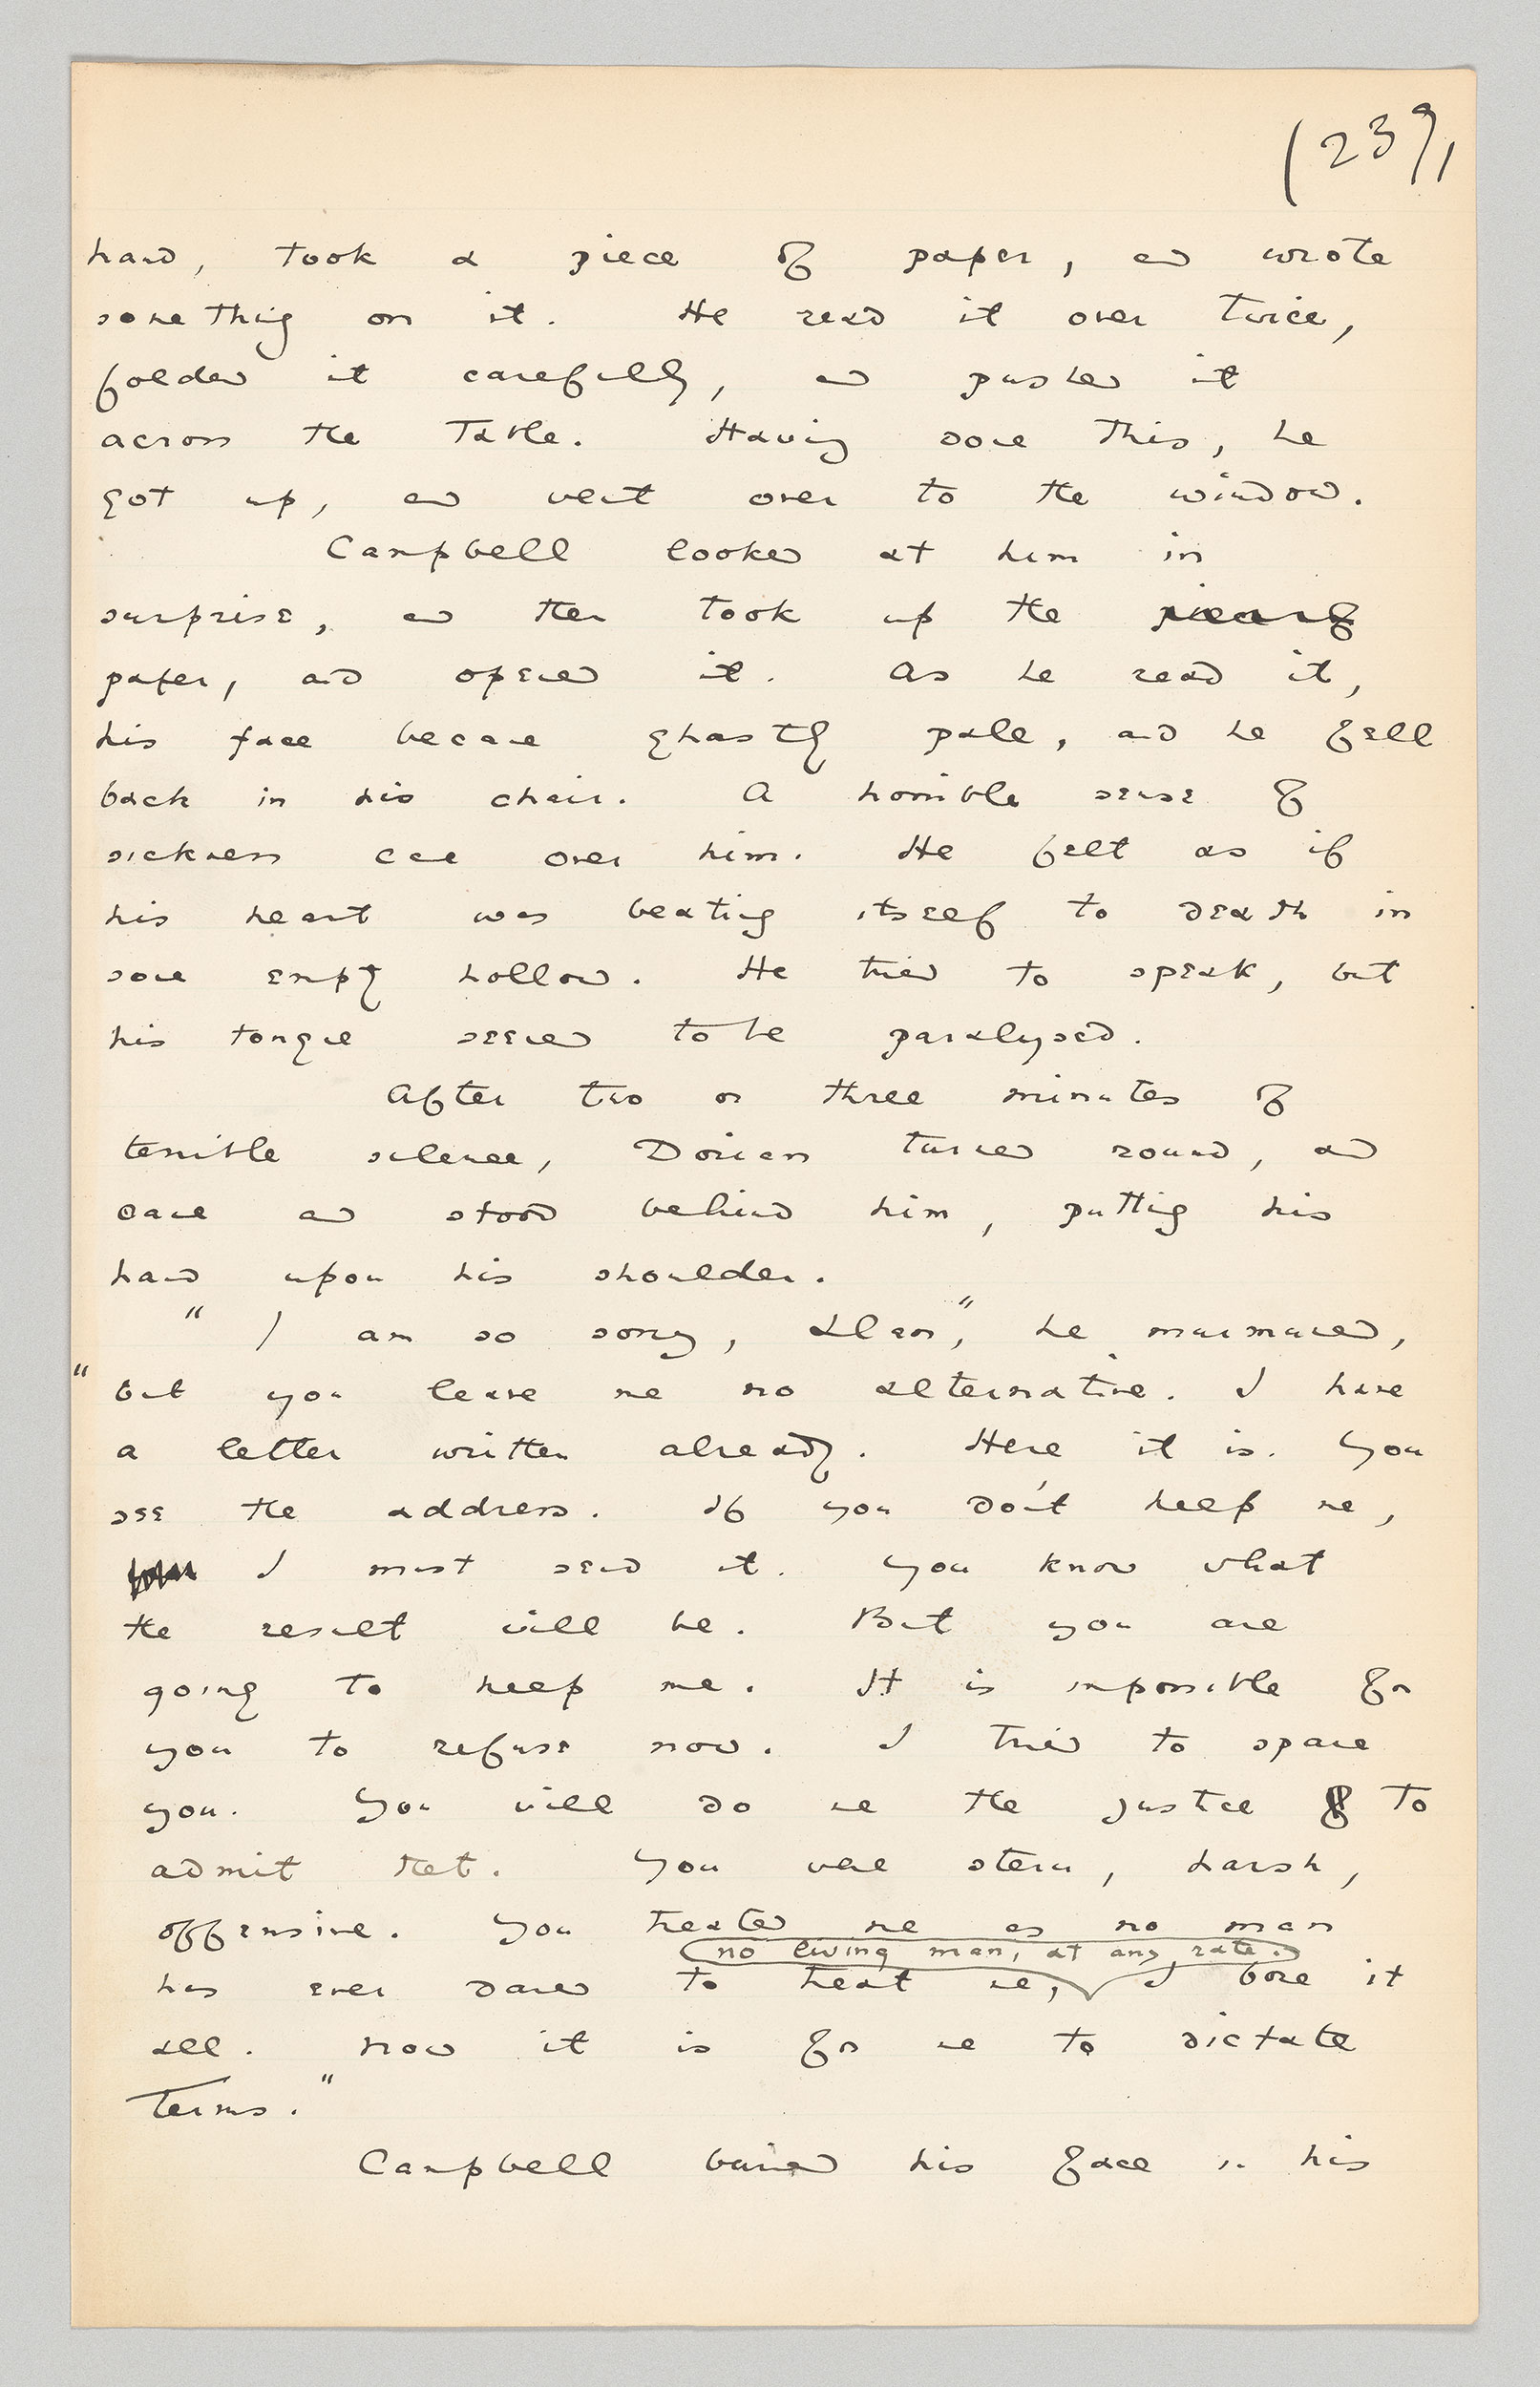 (239),
hand, took a piece of paper, and wrote
something on it. He read it over twice,
folded it carefully, and pushed it
across the table. Having done this, he
got up, and went over to the window.
Campbell looked at him in
surprise, and then took up the
paper, and opened it. As he read it,
his face became ghastly pale, and he fell
back in his chair. A horrible sense of
sickness came over him. He felt as if
his heart was beating itself to death in
some empty hollow. He tried to speak, but
his tongue seemed to be paralysed.
After two or three minutes of
terrible silence, Dorian turned round, and
came and stood behind him, putting his
hand upon his shoulder.
"I am so sorry, Alan," he murmured,
"but you leave me no alternative. I have
a letter written already. Here it is. You
see the address. If you don't help me,
I must send it. You know what
the result will be. But you are
going to help me. It is impossible for
you to refuse now. I tried to spare
you. You will do me the justice to
admit that. You were stern, harsh,
offensive. You treated me as no man
no living man, at any rate.
has ever dared to treat me, I bore it
all. Now it is for me to dictate
terms."
Campbell buried his face in his